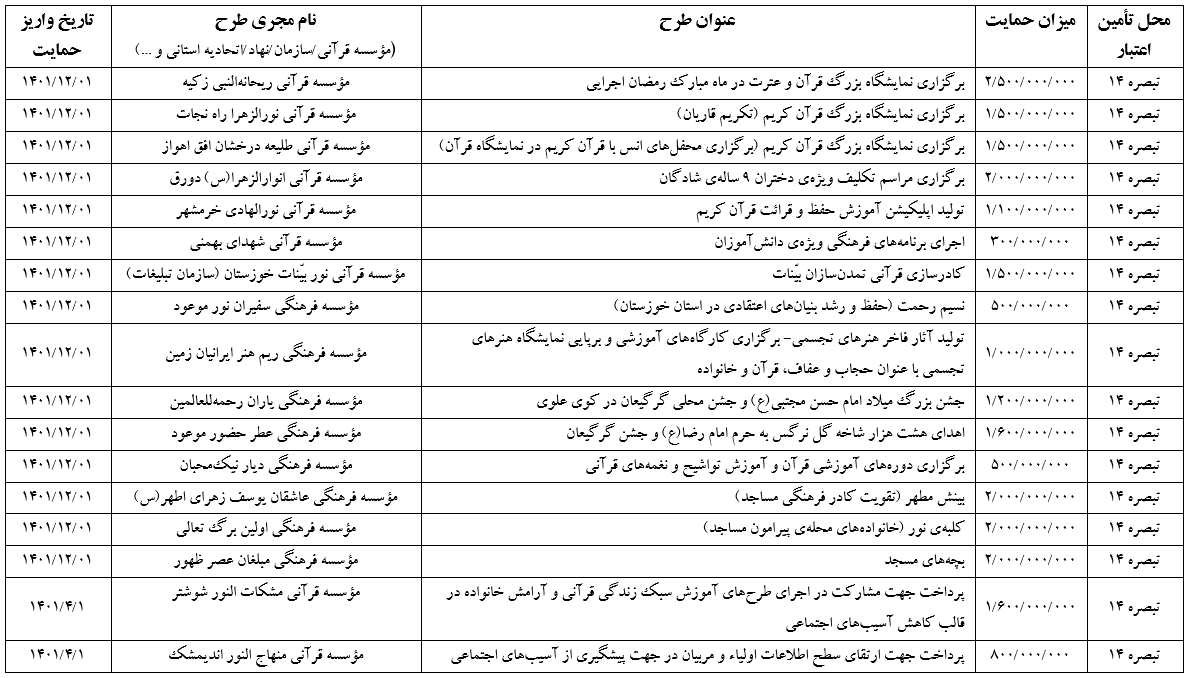 محل تأمین اعتبار | میزان حمایت | عنوان طرح | نام مجری طرح (مؤسسه قرآنی/سازمان/نهاد/اتحادیه استانی و ...) | تاریخ واریز حمایت
تبصره ۱۴ | ۲/۵۰۰/۰۰۰/۰۰۰ | برگزاری نمایشگاه بزرگ قرآن و عترت در ماه مبارک رمضان اجرایی | مؤسسه قرآنی ریحانه‌النبی زکیه | ۱۴۰۱/۱۲/۰۱
تبصره ۱۴ | ۱/۵۰۰/۰۰۰/۰۰۰ | برگزاری نمایشگاه بزرگ قرآن کریم (تکریم قاریان) | مؤسسه قرآنی نورالزهرا راه نجات | ۱۴۰۱/۱۲/۰۱
تبصره ۱۴ | ۱/۵۰۰/۰۰۰/۰۰۰ | برگزاری نمایشگاه بزرگ قرآن کریم (برگزاری محفل‌های انس با قرآن کریم در نمایشگاه قرآن) | مؤسسه قرآنی طلیعه درخشان افق اهواز | ۱۴۰۱/۱۲/۰۱
تبصره ۱۴ | ۲/۰۰۰/۰۰۰/۰۰۰ | برگزاری مراسم تکلیف ویژه‌ی دختران ۹ ساله‌ی شادگان | مؤسسه قرآنی انوارالزهرا(س) دورق | ۱۴۰۱/۱۲/۰۱
تبصره ۱۴ | ۱/۱۰۰/۰۰۰/۰۰۰ | تولید اپلیکیشن آموزش حفظ و قرائت قرآن کریم | مؤسسه قرآنی نورالهادی خرمشهر | ۱۴۰۱/۱۲/۰۱
تبصره ۱۴ | ۳۰۰/۰۰۰/۰۰۰ | اجرای برنامه‌های فرهنگی ویژه‌ی دانش‌آموزان | مؤسسه قرآنی شهدای بهمنی | ۱۴۰۱/۱۲/۰۱
تبصره ۱۴ | ۱/۵۰۰/۰۰۰/۰۰۰ | کادرسازی قرآنی تمدن‌سازان بیّنات | مؤسسه قرآنی نور بیّنات خوزستان (سازمان تبلیغات) | ۱۴۰۱/۱۲/۰۱
تبصره ۱۴ | ۵۰۰/۰۰۰/۰۰۰ | نسیم رحمت (حفظ و رشد بنیان‌های اعتقادی در استان خوزستان) | مؤسسه فرهنگی سفیران نور موعود | ۱۴۰۱/۱۲/۰۱
تبصره ۱۴ | ۱/۰۰۰/۰۰۰/۰۰۰ | تولید آثار فاخر هنرهای تجسمی- برگزاری کارگاه‌های آموزشی و برپایی نمایشگاه هنرهای
تجسمی با عنوان حجاب و عفاف، قرآن و خانواده | مؤسسه فرهنگی ریم هنر ایرانیان زمین | ۱۴۰۱/۱۲/۰۱
تبصره ۱۴ | ۱/۲۰۰/۰۰۰/۰۰۰ | جشن بزرگ میلاد امام حسن مجتبی(ع) و جشن محلی گرگیعان در کوی علوی | مؤسسه فرهنگی یاران رحمه‌للعالمین | ۱۴۰۱/۱۲/۰۱
تبصره ۱۴ | ۱/۶۰۰/۰۰۰/۰۰۰ | اهدای هشت هزار شاخه گل نرگس به حرم امام رضا(ع) و جشن گرگیعان | مؤسسه فرهنگی عطر حضور موعود | ۱۴۰۱/۱۲/۰۱
تبصره ۱۴ | ۵۰۰/۰۰۰/۰۰۰ | برگزاری دوره‌های آموزشی قرآن و آموزش تواشیح و نغمه‌های قرآنی | مؤسسه فرهنگی دیار نیک‌محبان | ۱۴۰۱/۱۲/۰۱
تبصره ۱۴ | ۲/۰۰۰/۰۰۰/۰۰۰ | بینش مطهر (تقویت کادر فرهنگی مساجد) | مؤسسه فرهنگی عاشقان یوسف زهرای اطهر(س) | ۱۴۰۱/۱۲/۰۱
تبصره ۱۴ | ۲/۰۰۰/۰۰۰/۰۰۰ | کلبه‌ی نور (خانواده‌های محله‌ی پیرامون مساجد) | مؤسسه فرهنگی اولین برگ تعالی | ۱۴۰۱/۱۲/۰۱
تبصره ۱۴ | ۲/۰۰۰/۰۰۰/۰۰۰ | بچه‌های مسجد | مؤسسه فرهنگی مبلغان عصر ظهور | ۱۴۰۱/۱۲/۰۱
تبصره ۱۴ | ۱/۶۰۰/۰۰۰/۰۰۰ | پرداخت جهت مشارکت در اجرای طرح‌های آموزش سبک زندگی قرآنی و آرامش خانواده در
قالب کاهش آسیب‌های اجتماعی | مؤسسه قرآنی مشکات النور شوشتر | ۱۴۰۱/۴/۱
تبصره ۱۴ | ۸۰۰/۰۰۰/۰۰۰ | پرداخت جهت ارتقای سطح اطلاعات اولیاء و مربیان در جهت پیشگیری از آسیب‌های اجتماعی | مؤسسه قرآنی منهاج النور اندیمشک | ۱۴۰۱/۴/۱